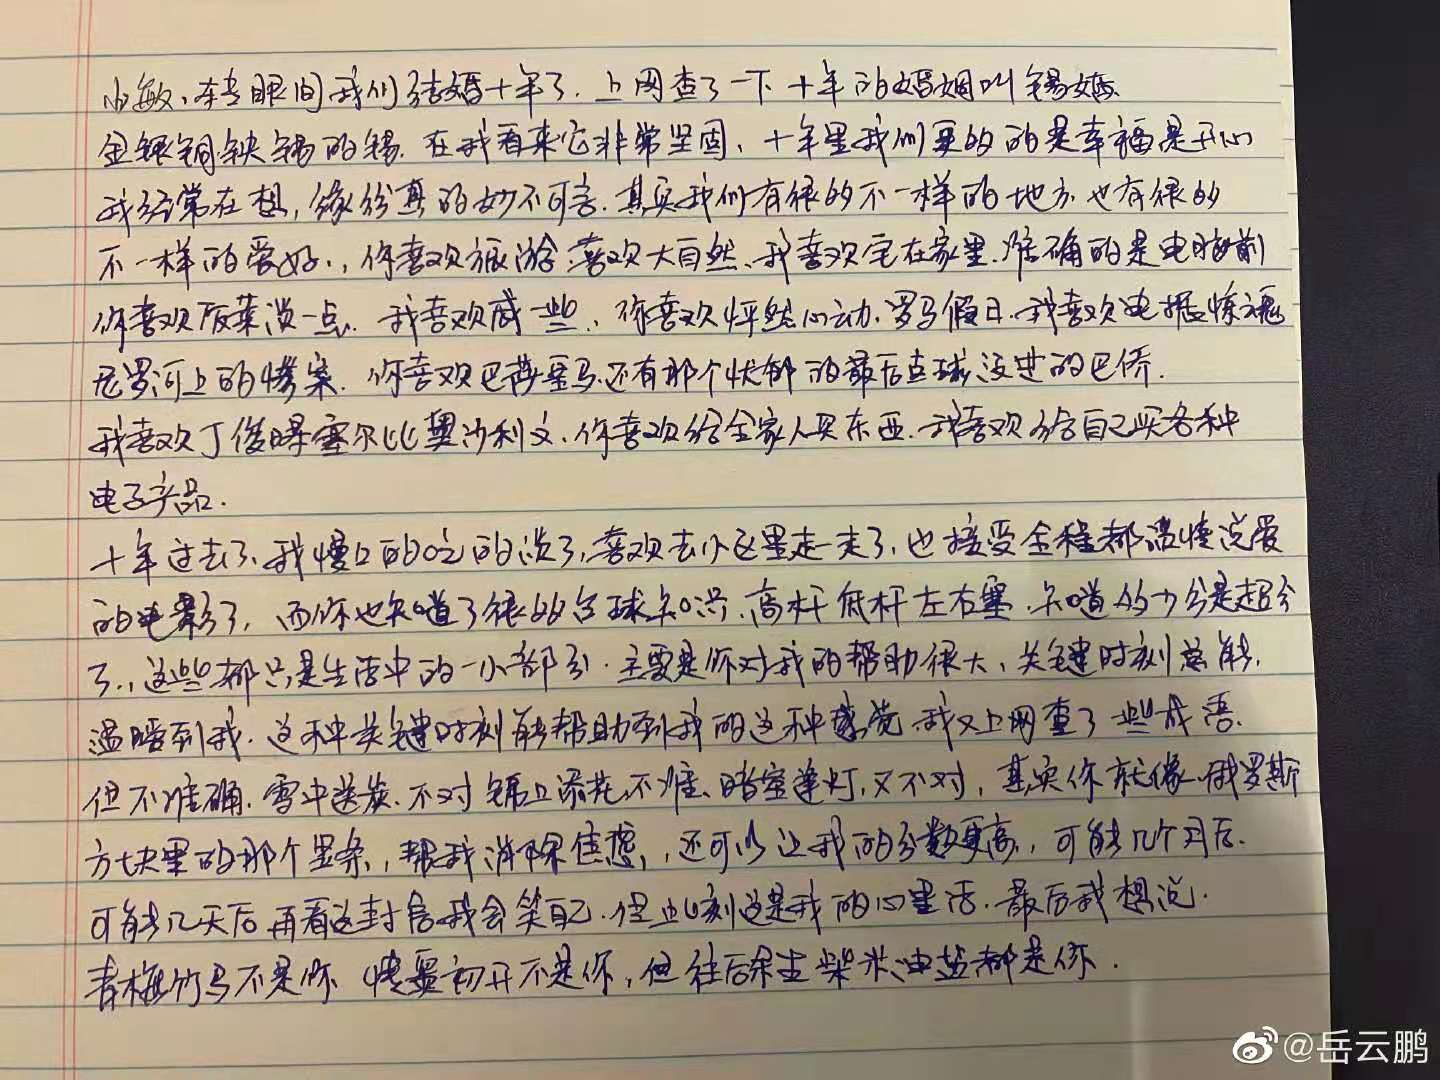 小敏、转眼间我们结婚十年了.上网查了一下十年的婚姻叫锡婚
金银铜铁锡的锡.在我看来它非常坚固、十年里我们更多的是幸福是开心
我经常在想,缘分真的妙不可言.其实我们有很多不一样的地方也有很多
不一样的爱好.,你喜欢旅游喜欢大自然、我喜欢宅在家里.准确的是电脑前
你喜欢饭菜淡一点.我喜欢咸一些、你喜欢怦然心动.罗马假日.我喜欢电锯惊魂
尼罗河上的惨案.你喜欢巴蒂罗马还有那个忧郁的最后点球没进的巴乔.
我喜欢丁俊晖塞尔比奥沙利文、你喜欢给全家人买东西.我喜欢给自己买各种
电子产品.
十年过去了、我慢慢的吃的淡了,喜欢去小区里走一走了,也接受全程都温情说爱
的电影了,而你也知道了很多台球知识.高杆低杆左右塞、知道145分是超分
了.,这些都只是生活中的一小部分.主要是你对我的帮助很大、关键时刻总能.
温暖到我.这种关键时刻能帮助到我的这种感觉.我又上网查了些成语.
但不准确.雪中送炭.不对锦上添花.不准、暗室逢灯,又不对,其实你就像俄罗斯
方块里的那个竖条,帮我消除焦虑,还可以让我的分数更高,可能几个月后.
可能几天后再看这封信我会笑自己.但此刻这是我的心里话.最后我想说.
青梅竹马不是你 情窦初开不是你,但往后余生柴米油盐都是你.
@岳云鹏